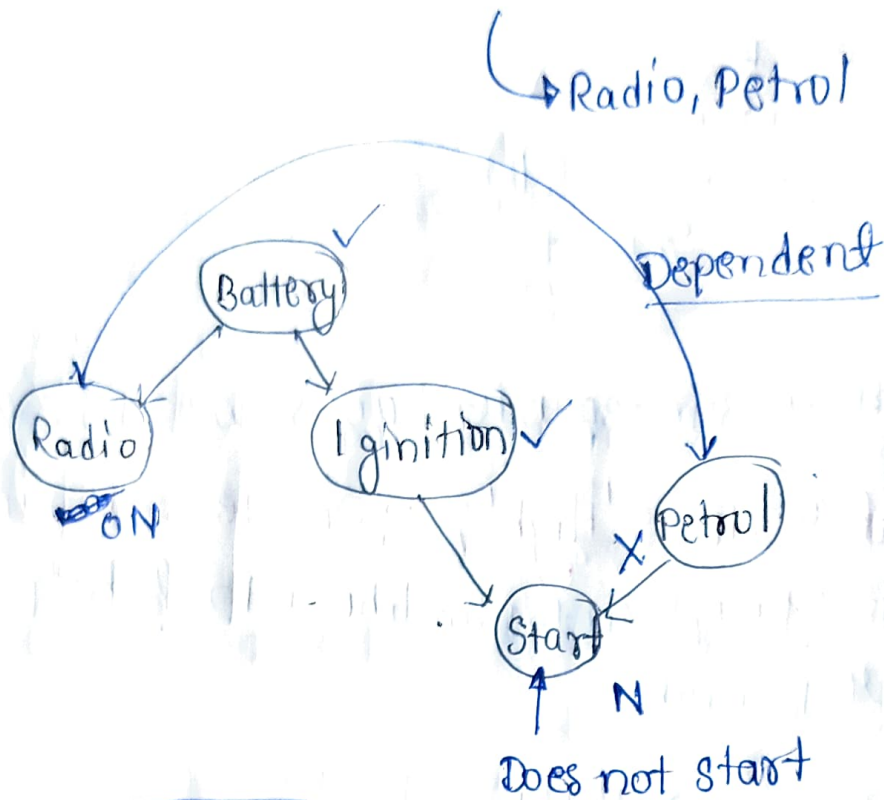 Radio, Petrol
Dependent
✓
Battery
Radio
ON
Iginition ✓
Petrol
X
Start
N
Does not start